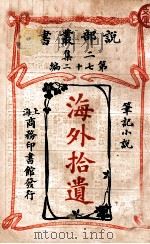 說部叢書
二集
第七十二編
筆記小說
海外拾遺
上海
商務印書館發行